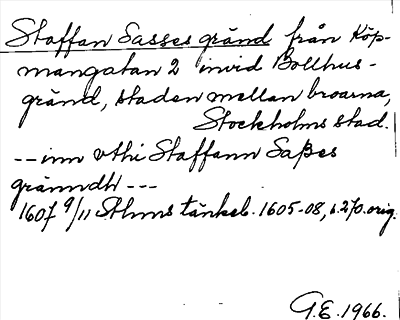 Staffan Sasses gränd från Köp-
mangatan 2 invid Bollhus-
gränd, staden mellan broarna,
Stockholms stad.
--inn vthi Staffann Saßes
gränndh---
1607 9/11 Sthms tänkeb. 1605-08, s. 270. orig.
G.E. 1966.